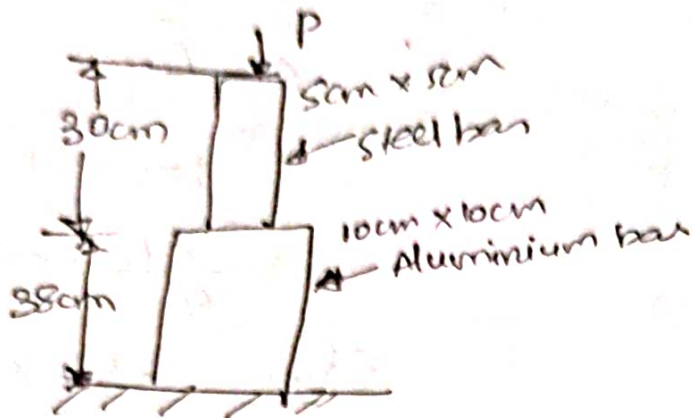 P
5cm x 5cm
30cm
steel bar
10cm x 10cm
Aluminium bar
38cm